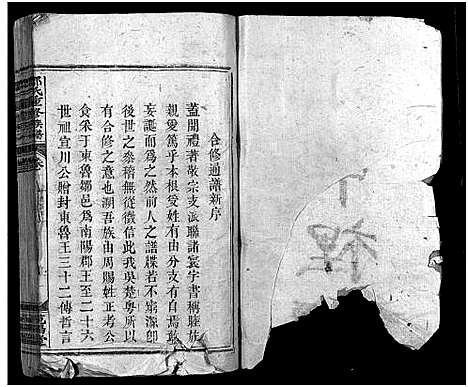 合修通譜新序
蓋聞禮著敬宗支派聯諸寰宇書稱睦族
親愛篤乎本根受姓有由分支有自焉敢
妄誕而爲之然前人之譜牒若不窮源卽
後世之叅稽無從徵信此我吳楚粵所以
有合修之意也溯吾族由周賜姓正考公
食采丁東魯鄒邑爲南陽郡王至二十六
世祖宜川公贈封東魯王三十二傳哲言